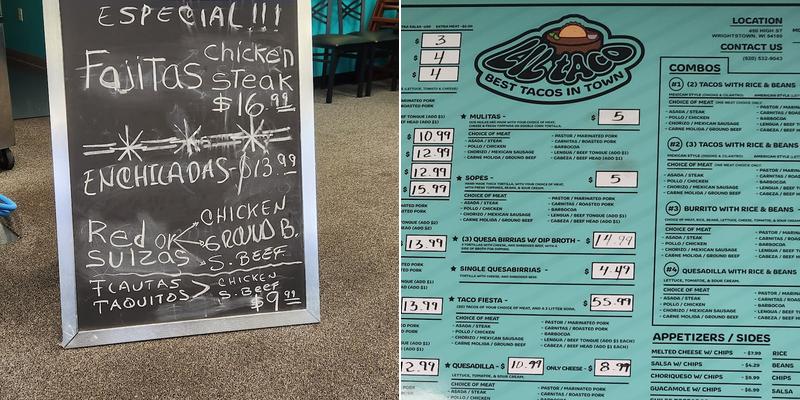 ESPECIAL!!!
Fajitas chicken
steak
$16.99
ENCHILADAS-$13.99
Red or
SUIZAS
CHICKEN
GROUND B.
S. BEEF.
FLAUTAS
TAQUITOS >
CHICKEN
S. BEEF
$9.99
EXTRA MEAT
$ 3
$ 4
$ 4
$ 10.99
$ 12.99
$ 12.99
$ 15.99
$ 13.99
$ 13.99
$ 12.99
LIL TACO
BEST TACOS IN TOWN
★ MULITAS - $ 5
CHOICE OF MEAT
- ASADA / STEAK
- POLLO / CHICKEN
- CHORIZO / MEXICAN SAUSAGE
- CARNE MOLIDA / GROUND BEEF
- PASTOR / MARINATED PORK
- CARNITAS / ROASTED PORK
- BARBOCOA
- LENGUA / BEEF TONGUE (ADD $1)
- CABEZA / BEEF HEAD (ADD $1)
★ SOPES - $ 5
CHOICE OF MEAT
- ASADA / STEAK
- POLLO / CHICKEN
- CHORIZO / MEXICAN SAUSAGE
- CARNE MOLIDA / GROUND BEEF
- PASTOR / MARINATED PORK
- CARNITAS / ROASTED PORK
- BARBOCOA
- LENGUA / BEEF TONGUE (ADD $1)
- CABEZA / BEEF HEAD (ADD $1)
★ (3) QUESA BIRRIAS W/ DIP BROTH - $ 14.99
★ SINGLE QUESABIRRIAS - $ 4.49
★ TACO FIESTA - $ 55.99
CHOICE OF MEAT
- ASADA / STEAK
- POLLO / CHICKEN
- CHORIZO / MEXICAN SAUSAGE
- CARNE MOLIDA / GROUND BEEF
- PASTOR / MARINATED PORK
- CARNITAS / ROASTED PORK
- BARBOCOA
- LENGUA / BEEF TONGUE (ADD $1 EACH)
- CABEZA / BEEF HEAD (ADD $1 EACH)
★ QUESADILLA - $ 10.99 ONLY CHEESE - $ 8.99
LETTUCE, TOMATOE, & SOUR CREAM.
CHOICE OF MEAT
LOCATION
WRIGHTSTOWN, WI 54180
CONTACT US
(920) 532-9043
COMBOS
#1 (2) TACOS WITH RICE & BEANS
CHOICE OF MEAT
- ASADA / STEAK
- POLLO / CHICKEN
- CHORIZO / MEXICAN SAUSAGE
- CARNE MOLIDA / GROUND BEEF
#2 (3) TACOS WITH RICE & BEANS
CHOICE OF MEAT
- ASADA / STEAK
- POLLO / CHICKEN
- CHORIZO / MEXICAN SAUSAGE
- CARNE MOLIDA / GROUND BEEF
#3 BURRITO WITH RICE & BEANS
CHOICE OF MEAT
- ASADA / STEAK
- POLLO / CHICKEN
- CHORIZO / MEXICAN SAUSAGE
- CARNE MOLIDA / GROUND BEEF
#4 QUESADILLA WITH RICE & BEANS
LETTUCE, TOMATOE, & SOUR CREAM.
CHOICE OF MEAT
- ASADA / STEAK
- POLLO / CHICKEN
- CHORIZO / MEXICAN SAUSAGE
- CARNE MOLIDA / GROUND BEEF
APPETIZERS / SIDES
MELTED CHEESE W/ CHIPS - $7.99 RICE
SALSA W/ CHIPS - $4.29 BEANS
CHORIQUESO W/ CHIPS - $9.99 CHIPS
GUACAMOLE W/ CHIPS - $6.99 SALSA